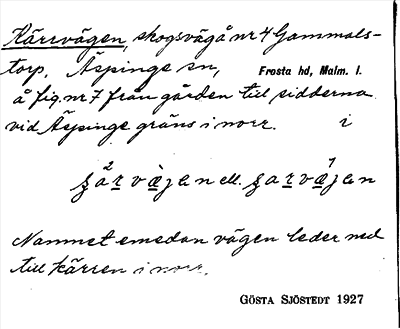 Kärrvägen, skogsväg å nr 4 Gammals-
torp, Äspinge sn, Frosta hd, Malm. l.
å fig. nr 7 från gården till sidderna
vid Äspinge gräns i norr. i
ell.
Namnet emedan vägen leder ned
till kärren i norr.
GÖSTA SJÖSTEDT 1927